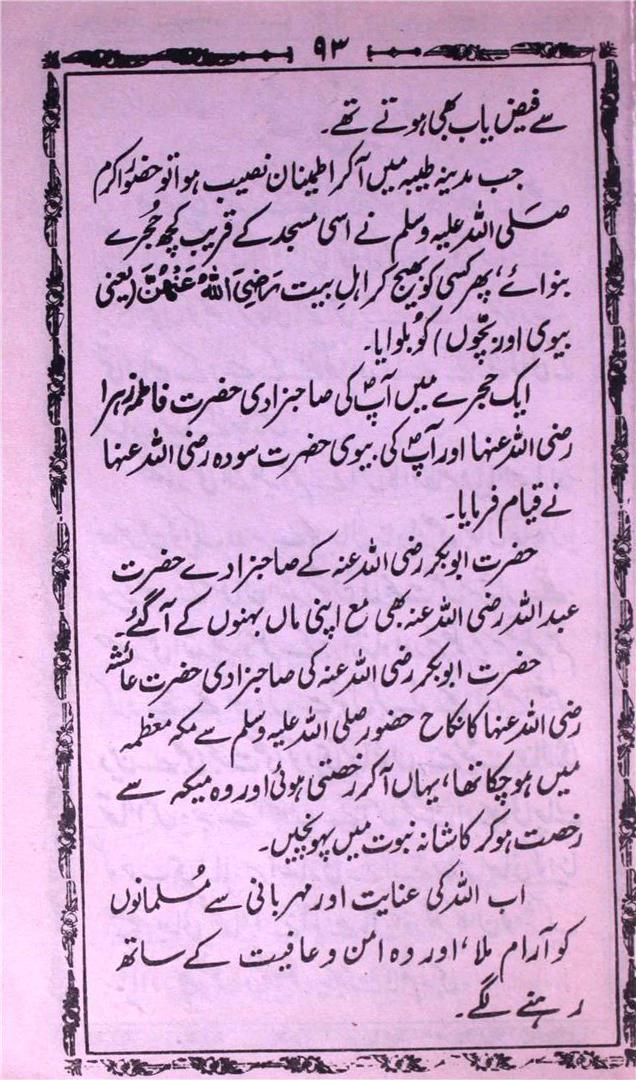 ۹۳
سے فیض یاب بھی ہوتے تھے۔
جب مدینہ طیبہ میں آکر اطمینان نصیب ہوا تو حضورِ اکرم
صَلی اللہ علیہ وسلم نے اسی مسجد کے قریب کچھ حُجرے
بنوائے، پھر کسی کو بھیج کر اہلِ بیت رَضِیَ اللہُ عَنْہُنَّ (یعنی
بیوی اور بچّوں) کو بُلوایا۔
ایک حجرے میں آپؐ کی صاحبزادی حضرت فاطمہ زہرا
رضی اللہ عنہا اور آپؐ کی بیوی حضرت سودہ رضی اللہ عنہا
نے قیام فرمایا۔
حضرت ابوبکر رضی اللہ عنہ کے صاحبزادے حضرت
عبداللہ رضی اللہ عنہ بھی مع اپنی ماں بہنوں کے آگئے۔
حضرت ابوبکر رضی اللہ عنہ کی صاحبزادی حضرت عائشہ
رضی اللہ عنہا کا نکاح حضور صلی اللہ علیہ وسلم سے مکہ معظمہ
میں ہوچکا تھا، یہاں آکر رخصتی ہوئی اور وہ میکہ سے
رخصت ہوکر کاشانہ نبوت میں پہونچیں۔
اب اللہ کی عنایت اور مہربانی سے مُسلمانوں
کو آرام ملا، اور وہ امن وعافیت کے ساتھ
رہنے لگے۔